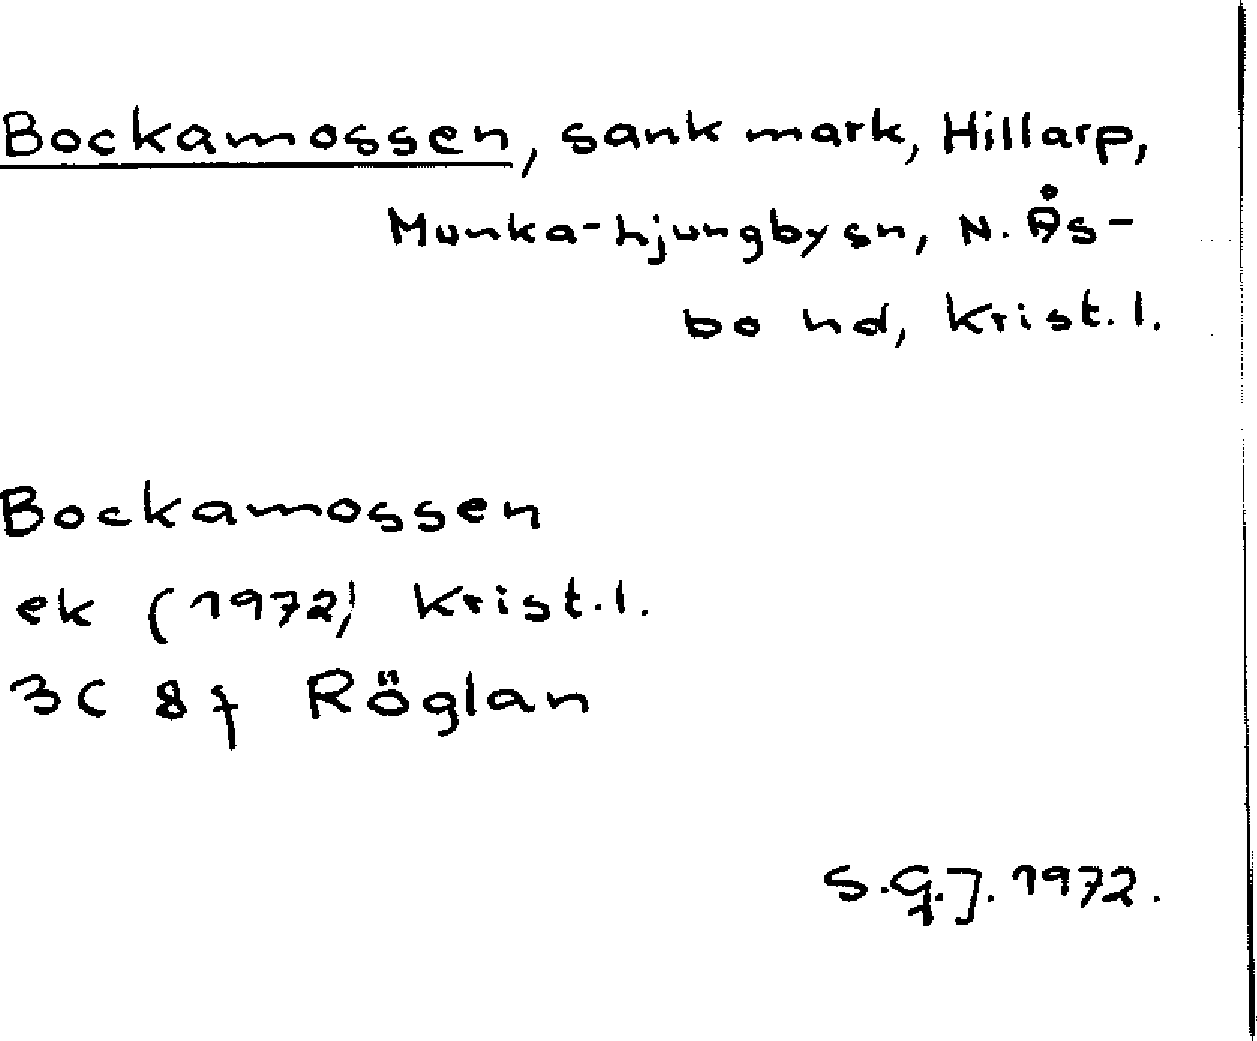 Bockamossen, sank mark, Hillarp,
Munka-Ljungby sn, N. Ås-
bo hd, Krist. l.
Bockamossen
ek (1972) Krist. l.
3C 8f Röglan
S.G.J. 1972.